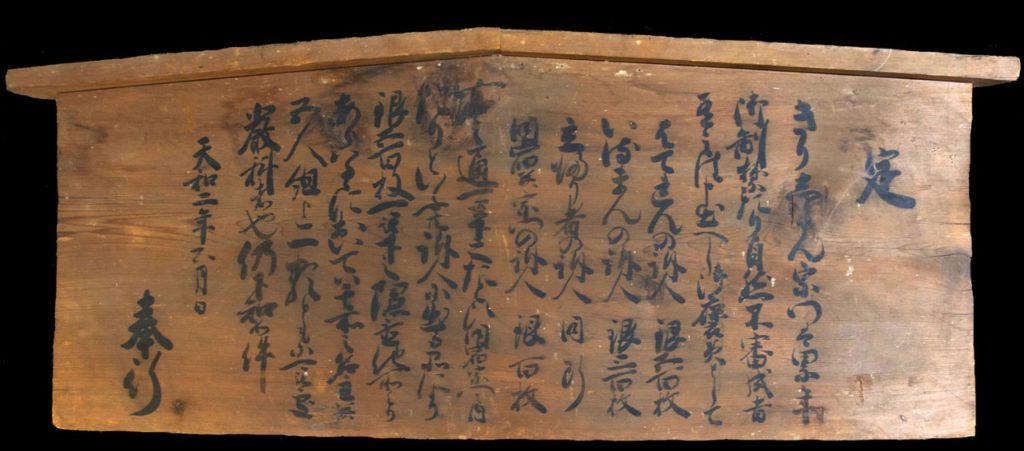 定
きりしたん宗門ハ累年
御制禁たり自然不審成者
有之ハ申出へし御褒美として
はてれんの訴人 銀五百枚
いるまんの訴人 銀三百枚
立帰り者の訴人 同断
同宿并宗門の訴人 銀百枚
右之通可被下之たとひ同宿宗門之内
たりといふとも訴人に出る品により
銀五百枚可被下之隠置他所より
あらはるゝにおいてハ其所之名主并
五人組迄一類ともに可処
厳科者也仍下知如件
天和二年 月日
奉行